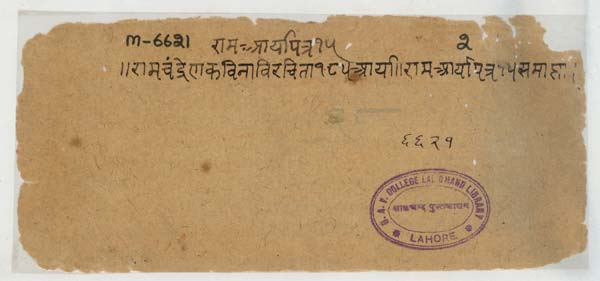 m-6621 रामआर्यापत्र१५ २
॥रामचंद्रेणकविनाविरचिता१८५आर्या॥रामआर्यापत्र१५समाप्ता।
६६२१
D. A. V. COLLEGE LAL CHAND LIBRARY
लालचन्द पुस्तकालय
LAHORE